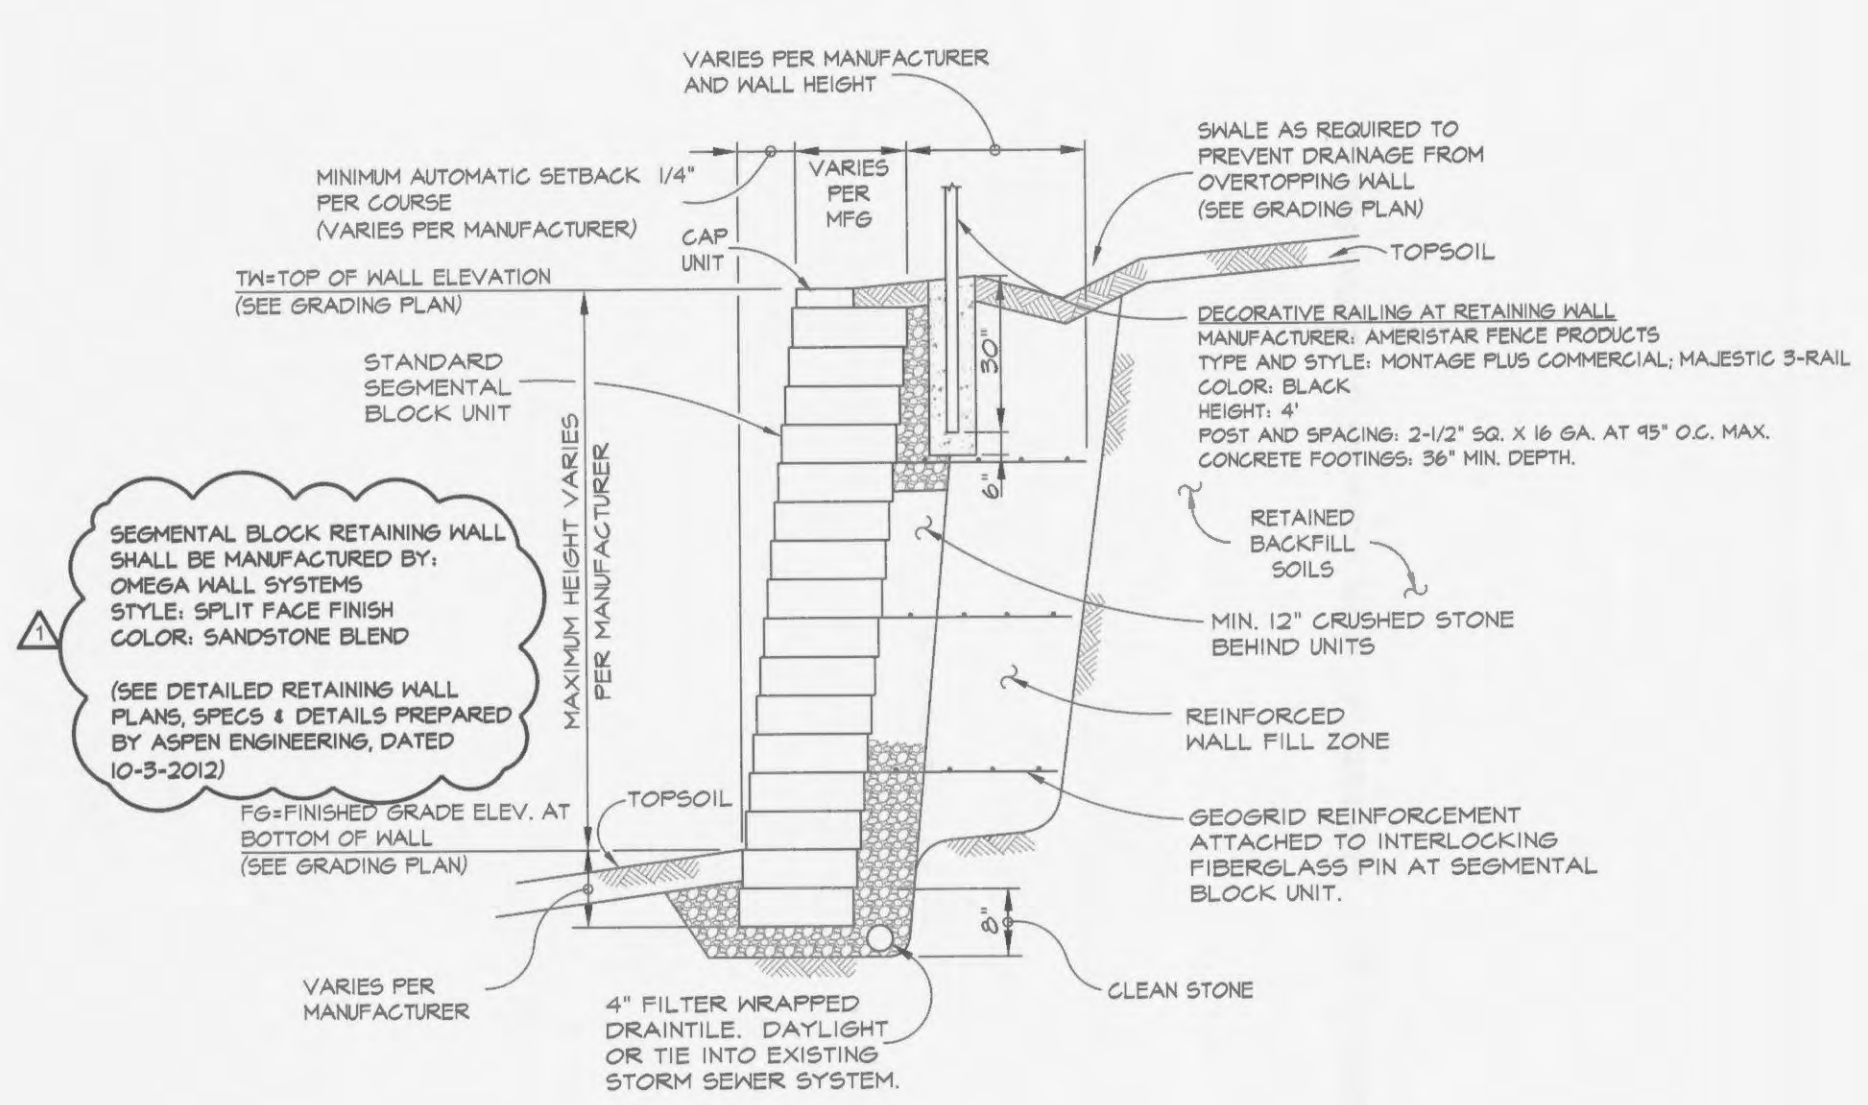 VARIES PER MANUFACTURER
AND WALL HEIGHT
SWALE AS REQUIRED TO
PREVENT DRAINAGE FROM
OVERTOPPING WALL
(SEE GRADING PLAN)
MINIMUM AUTOMATIC SETBACK 1/4"
PER COURSE
(VARIES PER MANUFACTURER)
VARIES
PER
MFG
CAP
UNIT
TOPSOIL
TW=TOP OF WALL ELEVATION
(SEE GRADING PLAN)
DECORATIVE RAILING AT RETAINING WALL
MANUFACTURER: AMERISTAR FENCE PRODUCTS
TYPE AND STYLE: MONTAGE PLUS COMMERCIAL; MAJESTIC 3-RAIL
COLOR: BLACK
HEIGHT: 4'
POST AND SPACING: 2-1/2" SQ. X 16 GA. AT 95" O.C. MAX.
CONCRETE FOOTINGS: 36" MIN. DEPTH.
STANDARD
SEGMENTAL
BLOCK UNIT
30"
6"
MAXIMUM HEIGHT VARIES
PER MANUFACTURER
SEGMENTAL BLOCK RETAINING WALL
SHALL BE MANUFACTURED BY:
OMEGA WALL SYSTEMS
STYLE: SPLIT FACE FINISH
COLOR: SANDSTONE BLEND
(SEE DETAILED RETAINING WALL
PLANS, SPECS & DETAILS PREPARED
BY ASPEN ENGINEERING, DATED
10-3-2012)
1
RETAINED
BACKFILL
SOILS
MIN. 12" CRUSHED STONE
BEHIND UNITS
REINFORCED
WALL FILL ZONE
GEOGRID REINFORCEMENT
ATTACHED TO INTERLOCKING
FIBERGLASS PIN AT SEGMENTAL
BLOCK UNIT.
FG=FINISHED GRADE ELEV. AT
BOTTOM OF WALL
(SEE GRADING PLAN)
TOPSOIL
8"
CLEAN STONE
VARIES PER
MANUFACTURER
4" FILTER WRAPPED
DRAINTILE. DAYLIGHT
OR TIE INTO EXISTING
STORM SEWER SYSTEM.